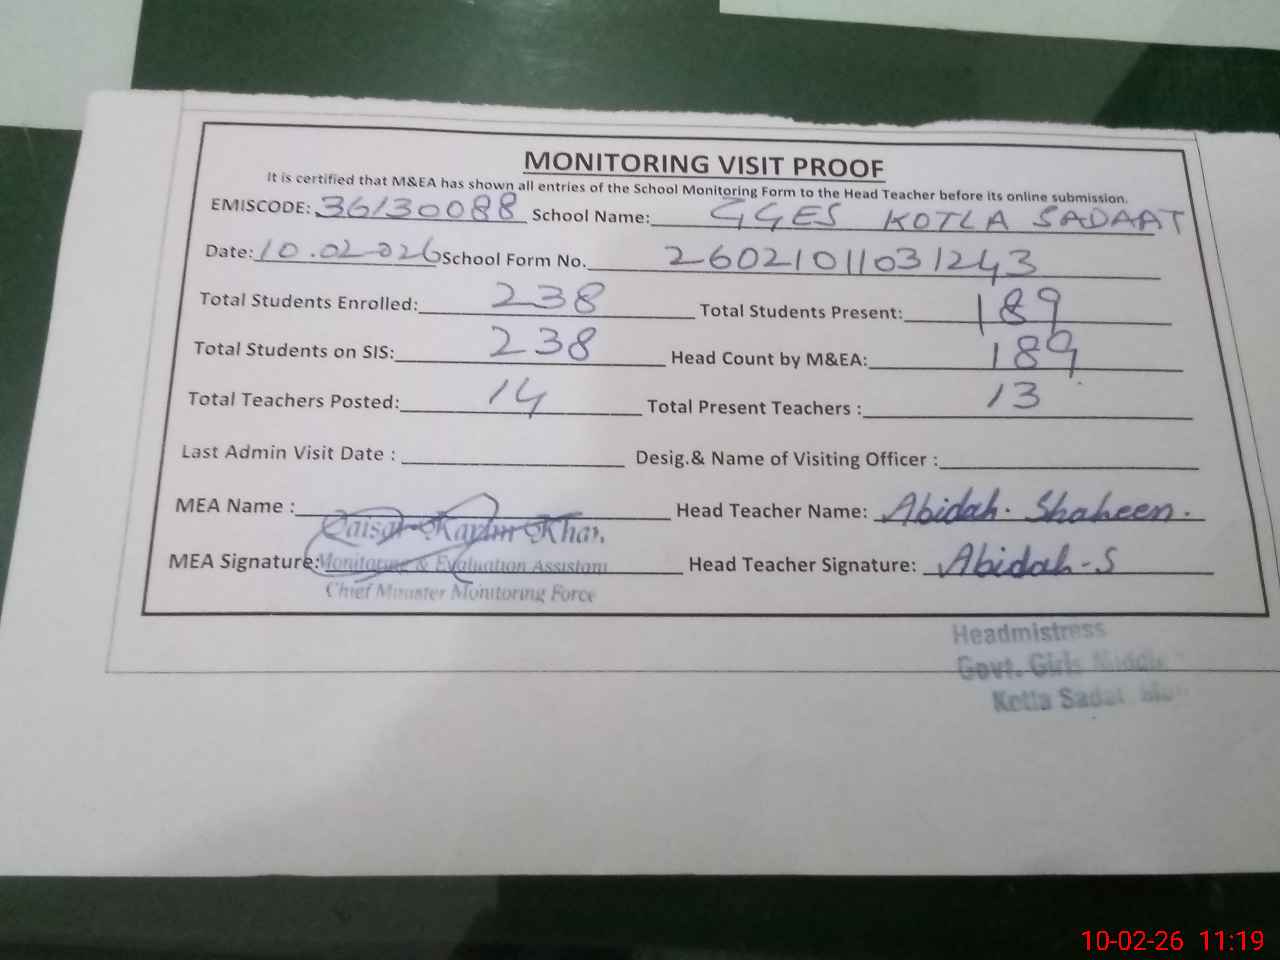 MONITORING VISIT PROOF
It is certified that M&EA has shown all entries of the School Monitoring Form to the Head Teacher before its online submission.
EMISCODE: 36130088 School Name: GGES KOTLA SADAAT
Date: 10.02-026 School Form No. 26021011031243
Total Students Enrolled: 238 Total Students Present: 189
Total Students on SIS: 238 Head Count by M&EA: 189
Total Teachers Posted: 14 Total Present Teachers : 13
Last Admin Visit Date : Desig.& Name of Visiting Officer :
MEA Name : Qaisar Karim Khan Head Teacher Name: Abidah. Shaheen.
MEA Signature: Monitoring & Evaluation Assistant Head Teacher Signature: Abidah-S
Chief Minister Monitoring Force
Headmistress
Govt. Girls Middle
Kotla Sadat
10-02-26 11:19